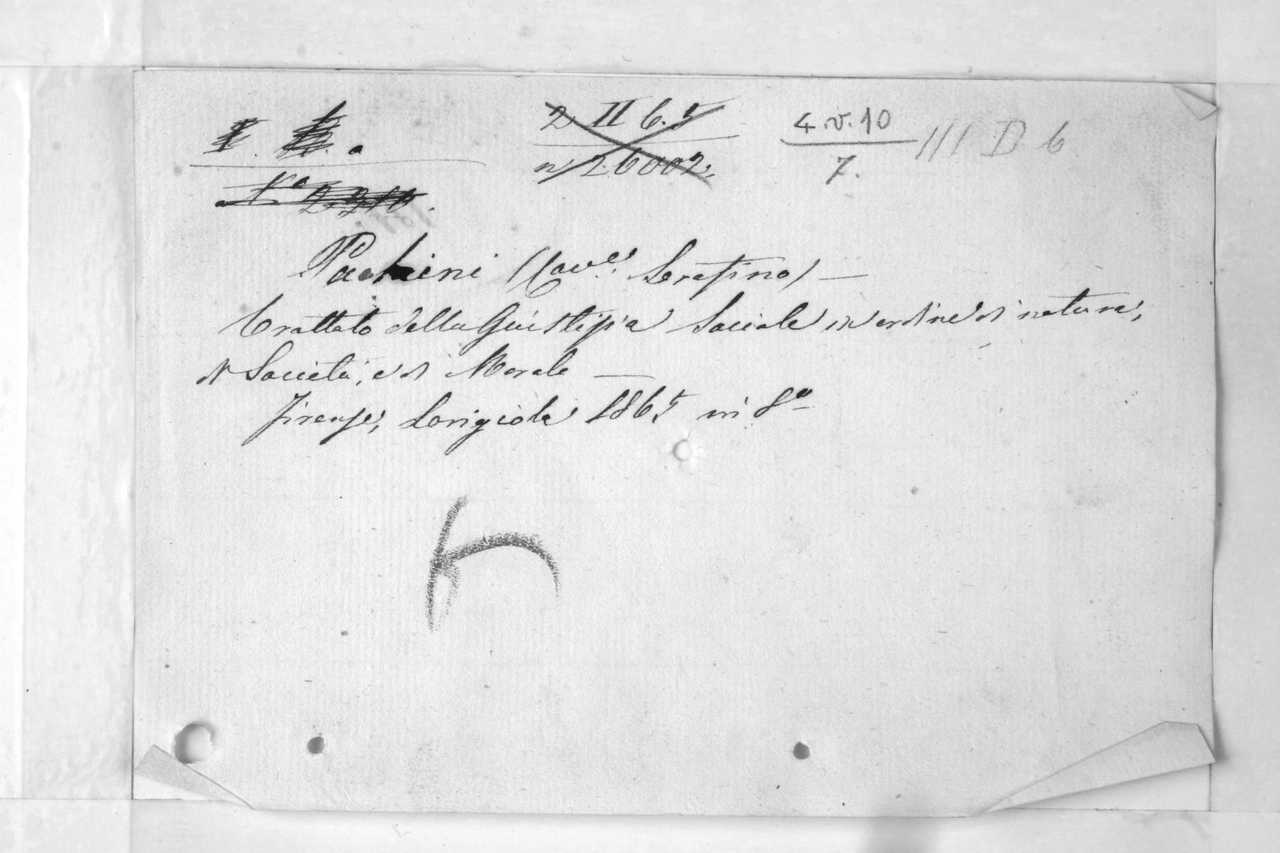 2 II 6.5
4.v.10
III D 6
n. 26002.
7.
(Cav.e Serafino) —
Trattato della Giustizia Sociale in ordine di natura,
di Società, e di Morale —
Firenze, 1865 in 8°